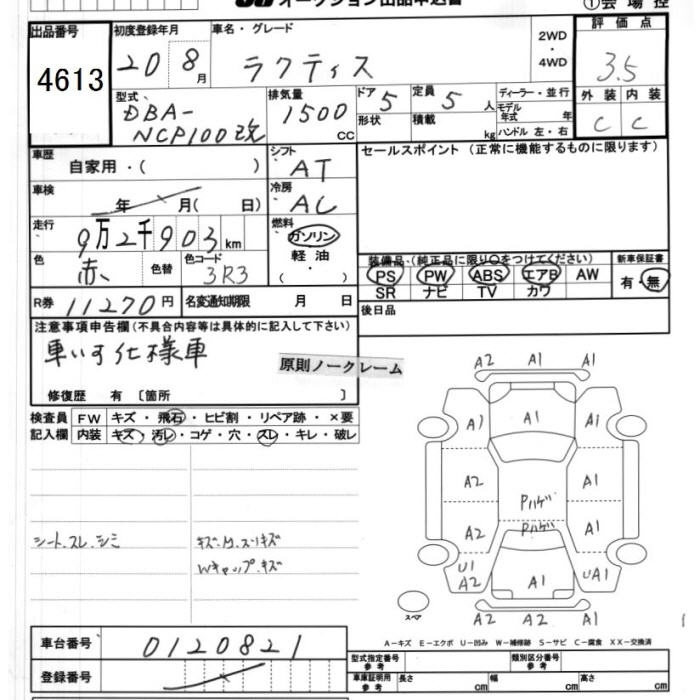 オークション出品申込書
①会場控
出品番号
4613
初度登録年月
20 8月
車名・グレード
ラクティス
2WD
・
4WD
評価点
3.5
外装 内装
C C
型式
DBA-
NCP100改
排気量
1500
CC
ドア 5
形状
定員 5 人
積載 kg
ディーラー・並行
モデル年式 年
ハンドル 左・右
車歴
自家用・( )
シフト
AT
セールスポイント(正常に機能するものに限ります)
車検
年 月( 日)
冷房
AC
走行
9万2千903km
燃料
ガソリン
軽油
・( )
色
赤
色替
色コード
3R3
装備品(純正品に限り○をつけてください)
PS PW ABS エアB AW
SR ナビ TV カワ
新車保証書
有・無
R券 11270円
名変通知期限 月 日
後日品
注意事項申告欄(不具合内容等は具体的に記入して下さい)
車いす仕様車
原則ノークレーム
修復歴 有 〔箇所 〕
検査員
記入欄
FW キズ・飛石・ヒビ割・リペア跡・×要
内装 キズ・汚レ・コゲ・穴・スレ・キレ・破レ
シート.スレ.シミ
キズ.
Wキャップ.キズ
A2 A1 A1
A1 A1 A1
A2 A1
Pハゲ
A2 Pハゲ A1
U1
A2 A1 UA1
スペア
A2 A2 A1
A-キズ E-エクボ U-凹み W-補修跡 S-サビ C-腐食 XX-交換済
車台番号
0120821
登録番号
型式指定番号
参考
類別区分番号
参考
車庫証明用
参考
長さ cm 幅 cm 高さ cm